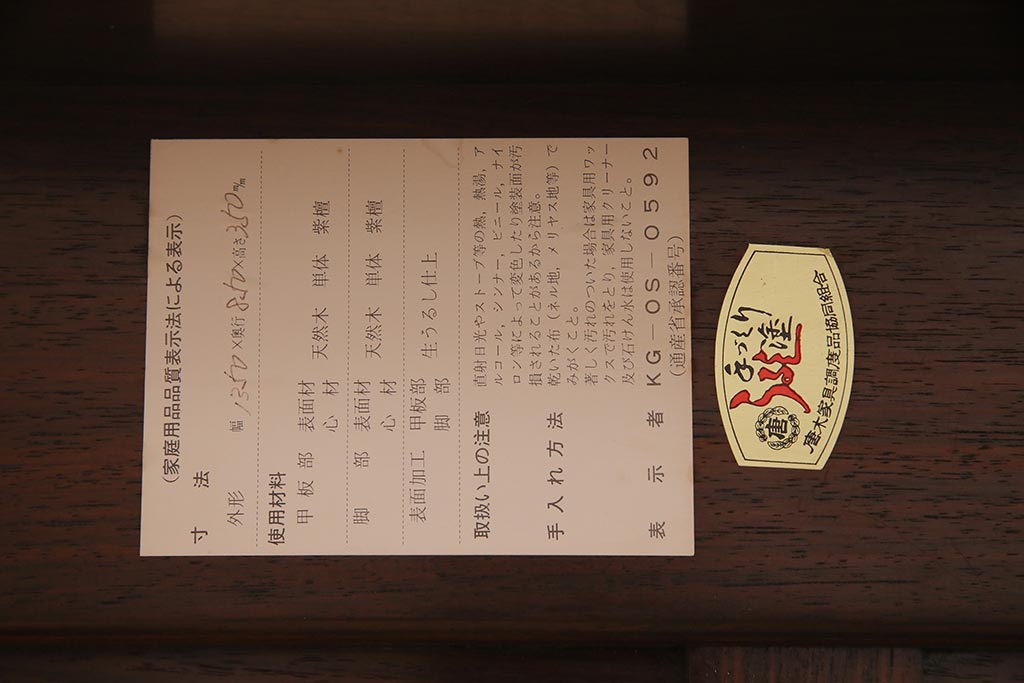 (家庭用品品質表示法による表示)
寸法
外形 幅 1350×奥行 850×高さ 350m/m
使用材料
甲板部 表面材 天然木 単体 紫檀
心材
脚部 表面材 天然木 単体 紫檀
心材
表面加工 甲板部 生うるし仕上
脚部
取扱い上の注意 直射日光やストーブ等の熱,熱湯,ア
ルコール,シンナー,ビニール,ナイ
ロン等によって変色したり塗装面が汚
損されることがあるから注意。
手入れ方法 乾いた布(ネル地,メリヤス地等)で
みがくこと。
著しく汚れのついた場合は家具用ワッ
クスで汚れをとり,家具用クリーナー
及び石けん水は使用しないこと。
表示者 KG-OS-0592
(通産省承認番号)
手づくり
うるし塗
唐
唐木家具調度品協同組合